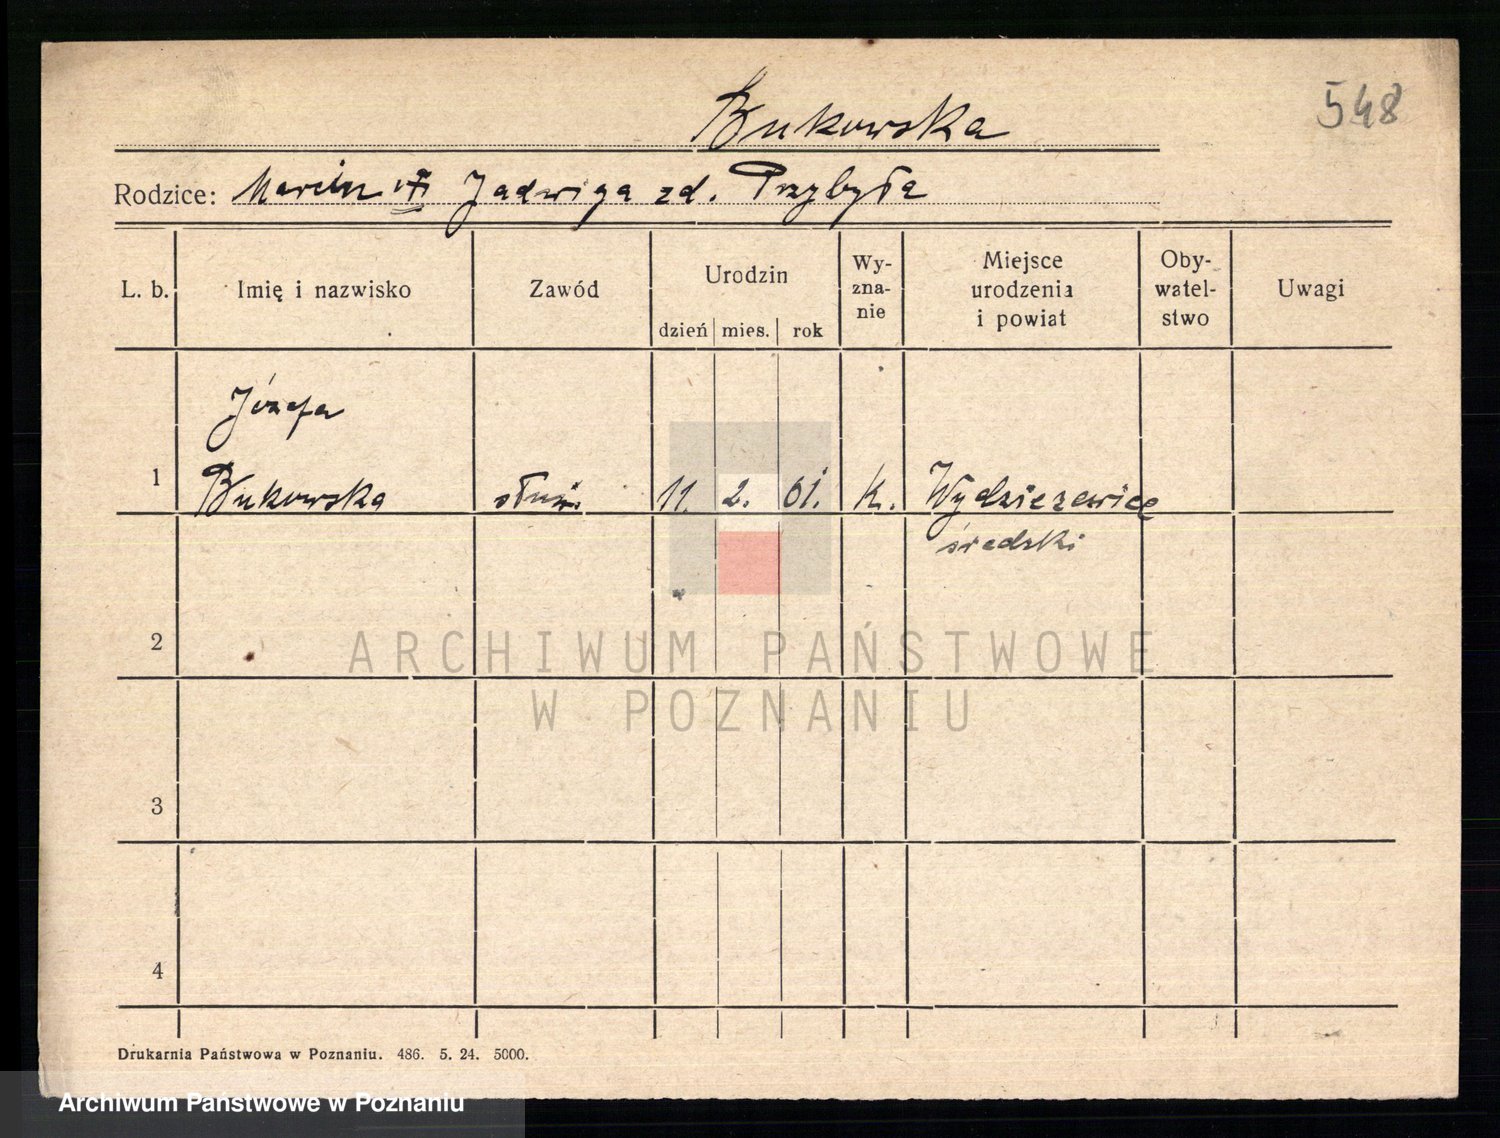 Bukowska
548
Rodzice: Marcin i Jadwiga zd. Przybyła
L. b.
Imię i nazwisko
Zawód
Urodzin
dzień mies. rok
Wy-
zna-
nie
Miejsce
urodzenia
i powiat
Oby-
watel-
stwo
Uwagi
Józefa
1 Bukowska służ. 11. 2. 01. K. Wydzierzewice
średzki
2
ARCHIWUM PAŃSTWOWE
W POZNANIU
3
4
Drukarnia Państwowa w Poznaniu. 486. 5. 24. 5000.
Archiwum Państwowe w Poznaniu